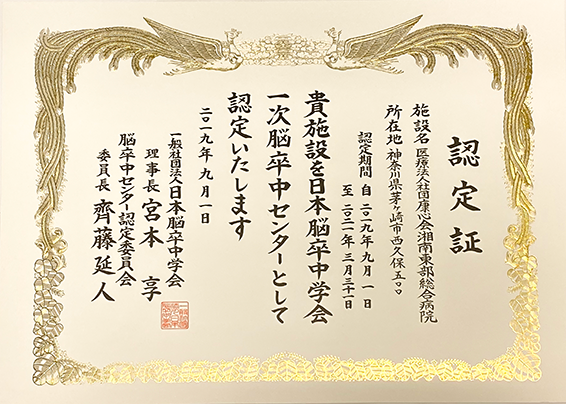 認定証
施設名 医療法人社団康心会湘南東部総合病院
所在地 神奈川県茅ヶ崎市西久保五〇〇
認定期間 自 二〇一九年 九月 一日
至 二〇二一年 三月三十一日
貴施設を日本脳卒中学会
一次脳卒中センターとして
認定いたします
二〇一九年 九月一日
一般社団法人日本脳卒中学会
理事長 宮本 享
脳卒中センター認定委員会
委員長 齊藤延人